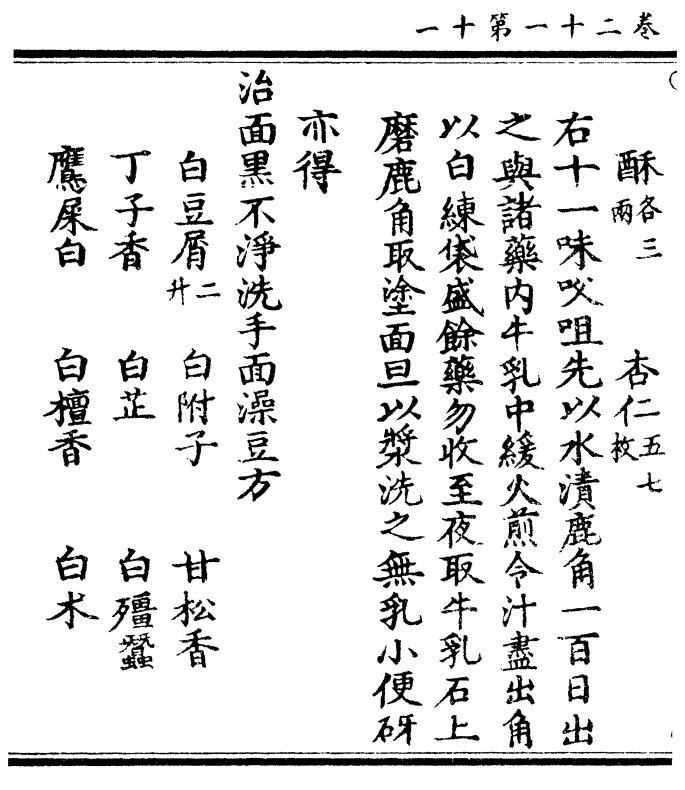 卷二十一第十一
酥各三兩 杏仁五七枚
右十一味㕮咀先以水漬鹿角一百日出
之與諸藥内牛乳中緩火煎令汁盡出角
以白練袋盛餘藥勿收至夜取牛乳石上
磨鹿角取塗面旦以漿洗之無乳小便研
亦得
治面黑不淨洗手面澡豆方
白豆屑二升 白附子 甘松香
丁子香 白芷 白殭蠶
鷹屎白 白檀香 白术